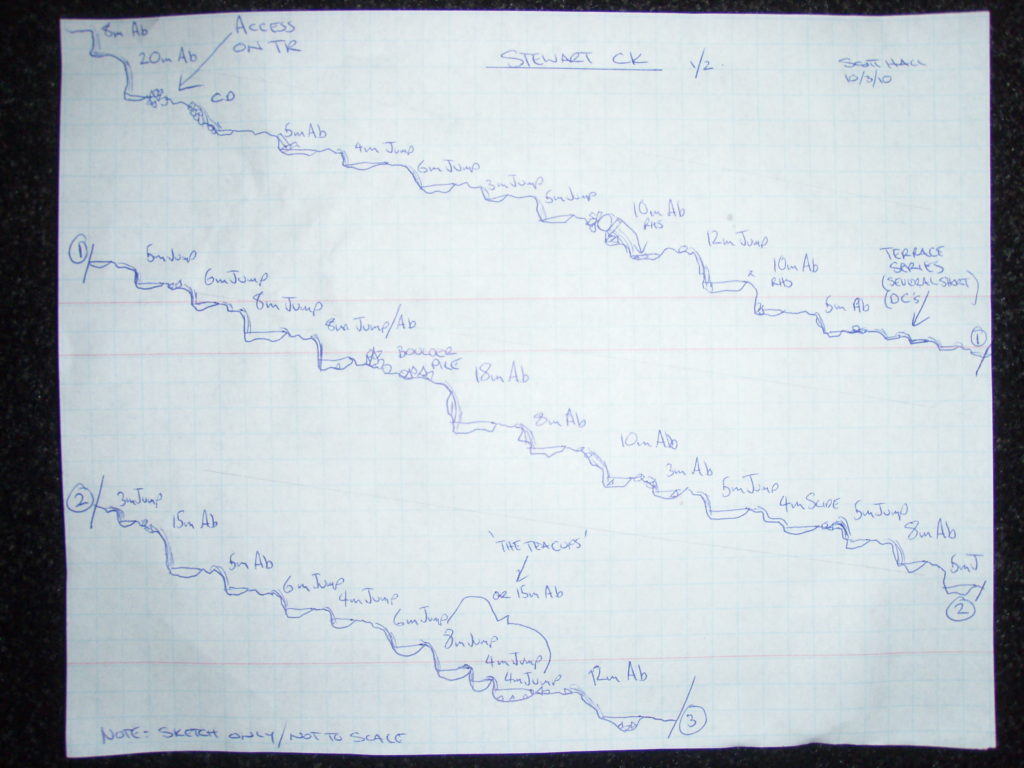 STEWART CK 1/2
SCOTT HALL
10/3/10
8m Ab
ACCESS
ON TR
20m Ab
CD
5m Ab
4m Jump
6m Jump
3m Jump
5m Jump
10m Ab
RHS
12m Jump
10m Ab
RHS
5m Ab
TERRACE
SERIES
(SEVERAL SHORT
DC's)
1
1
5m Jump
6m Jump
8m Jump
8m Jump/Ab
BOULDER
PILE
18m Ab
8m Ab
10m Ab
3m Ab
5m Jump
4m SLIDE
5m Jump
8m Ab
5m J
2
2
3m Jump
15m Ab
5m Ab
6m Jump
4m Jump
6m Jump
'THE TEACUPS'
OR 15m Ab
8m Jump
4m Jump
4m Jump
12m Ab
3
NOTE: SKETCH ONLY/NOT TO SCALE